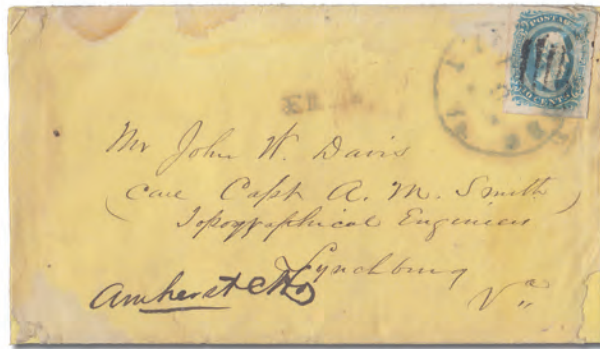 POSTAGE
CENTS
Mr John W. Davis
(Care Capt A. M. Smith)
Topographical Engineers
Lynchburg
Va
Amherst CHo